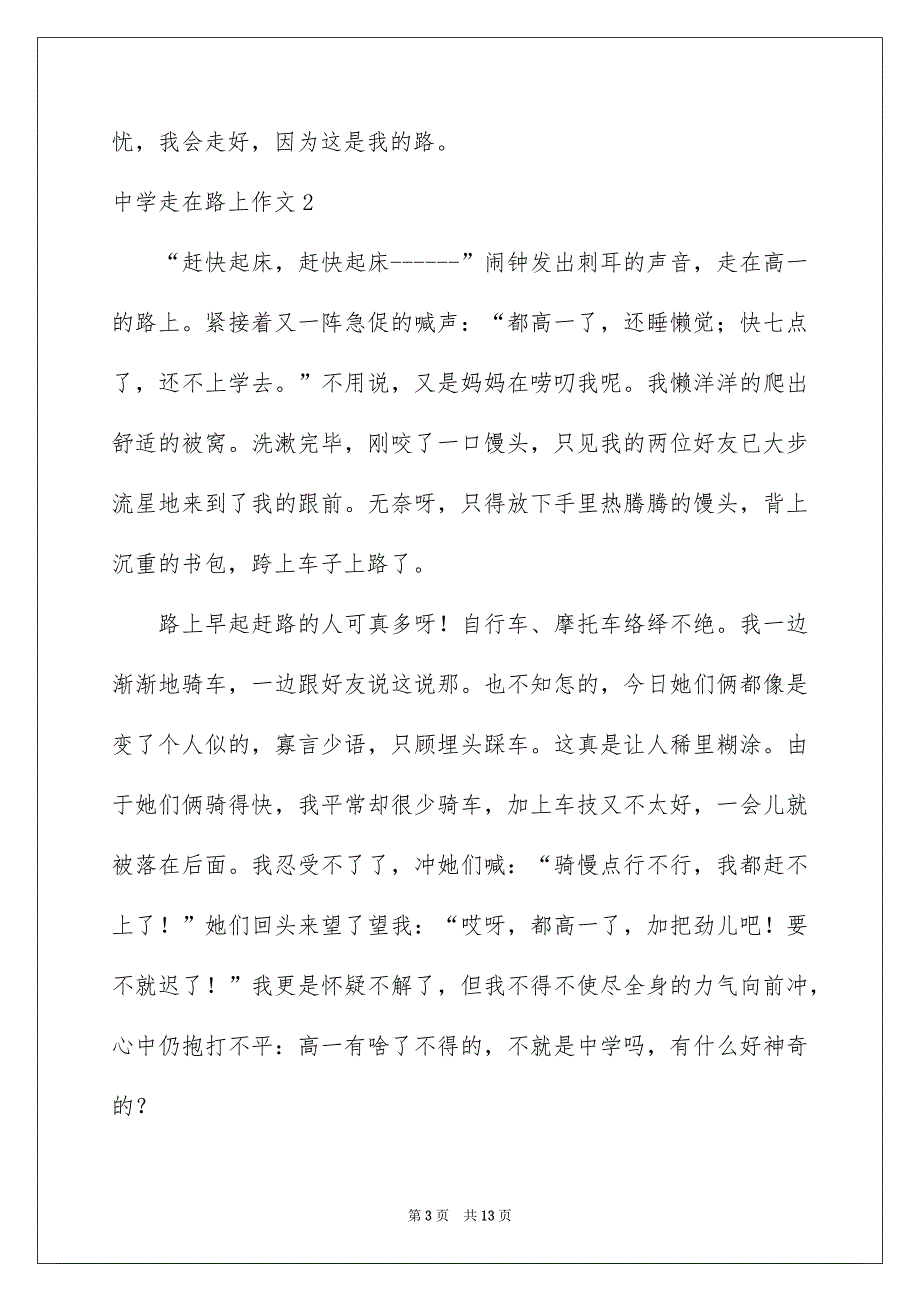 忧，我会走好，因为这是我的路。
中学走在路上作文2
“赶快起床，赶快起床------”闹钟发出刺耳的声音，走在高一
的路上。紧接着又一阵急促的喊声：“都高一了，还睡懒觉；快七点
了，还不上学去。”不用说，又是妈妈在唠叨我呢。我懒洋洋的爬出
舒适的被窝。洗漱完毕，刚咬了一口馒头，只见我的两位好友已大步
流星地来到了我的跟前。无奈呀，只得放下手里热腾腾的馒头，背上
沉重的书包，跨上车子上路了。
路上早起赶路的人可真多呀！自行车、摩托车络绎不绝。我一边
渐渐地骑车，一边跟好友说这说那。也不知怎的，今日她们俩都像是
变了个人似的，寡言少语，只顾埋头踩车。这真是让人稀里糊涂。由
于她们俩骑得快，我平常却很少骑车，加上车技又不太好，一会儿就
被落在后面。我忍受不了了，冲她们喊：“骑慢点行不行，我都赶不
上了！”她们回头来望了望我：“哎呀，都高一了，加把劲儿吧！要
不就迟了！”我更是怀疑不解了，但我不得不使尽全身的力气向前冲，
心中仍抱打不平：高一有啥了不得的，不就是中学吗，有什么好神奇
的？
第 3 页 共 13 页